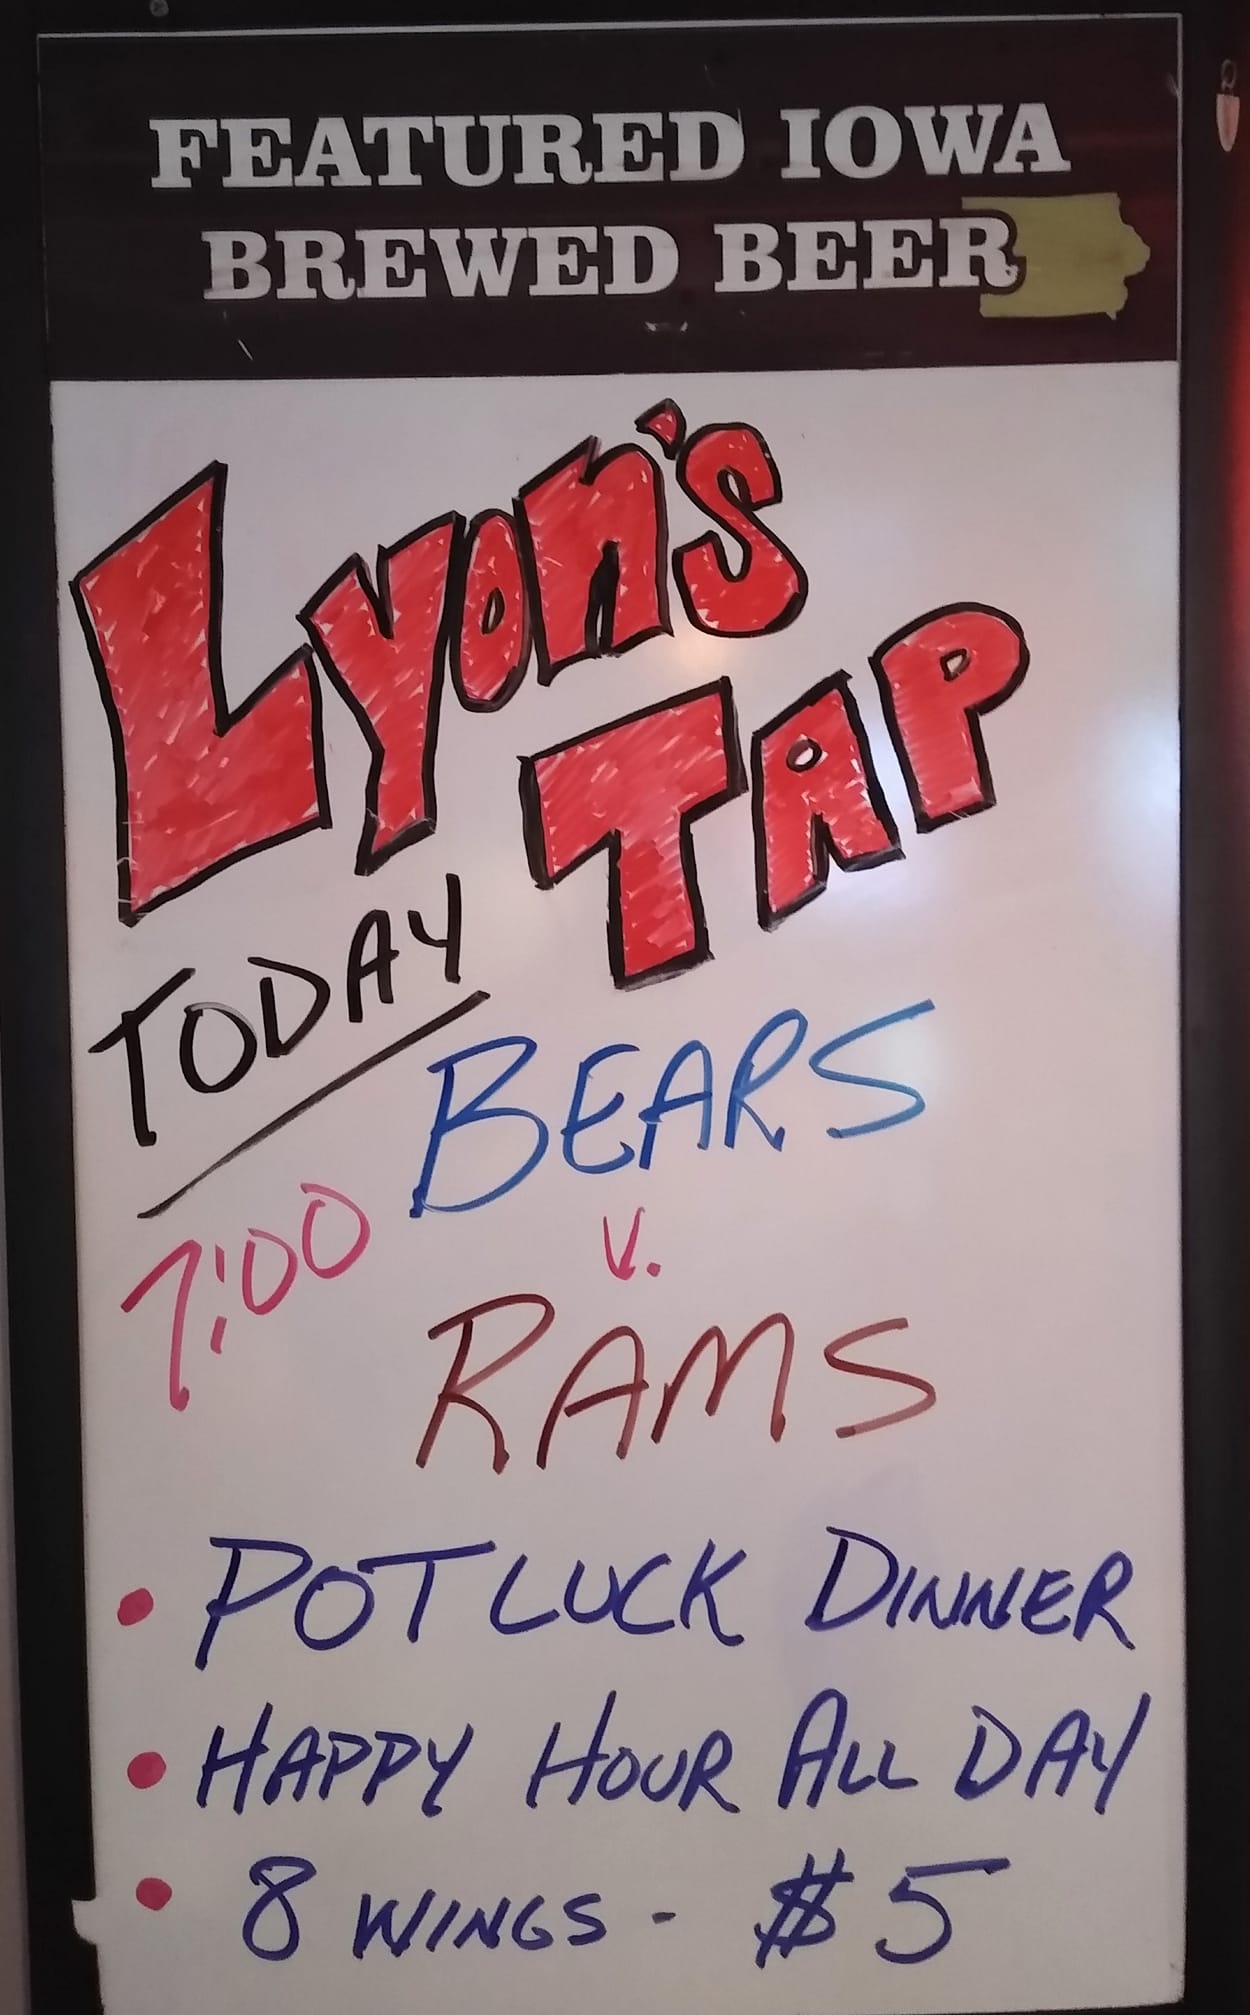 FEATURED IOWA
BREWED BEER
Lyon's
TAP
TODAY
BEARS
7:00
V.
RAMS
• POT LUCK DINNER
• HAPPY HOUR ALL DAY
• 8 WINGS - $5